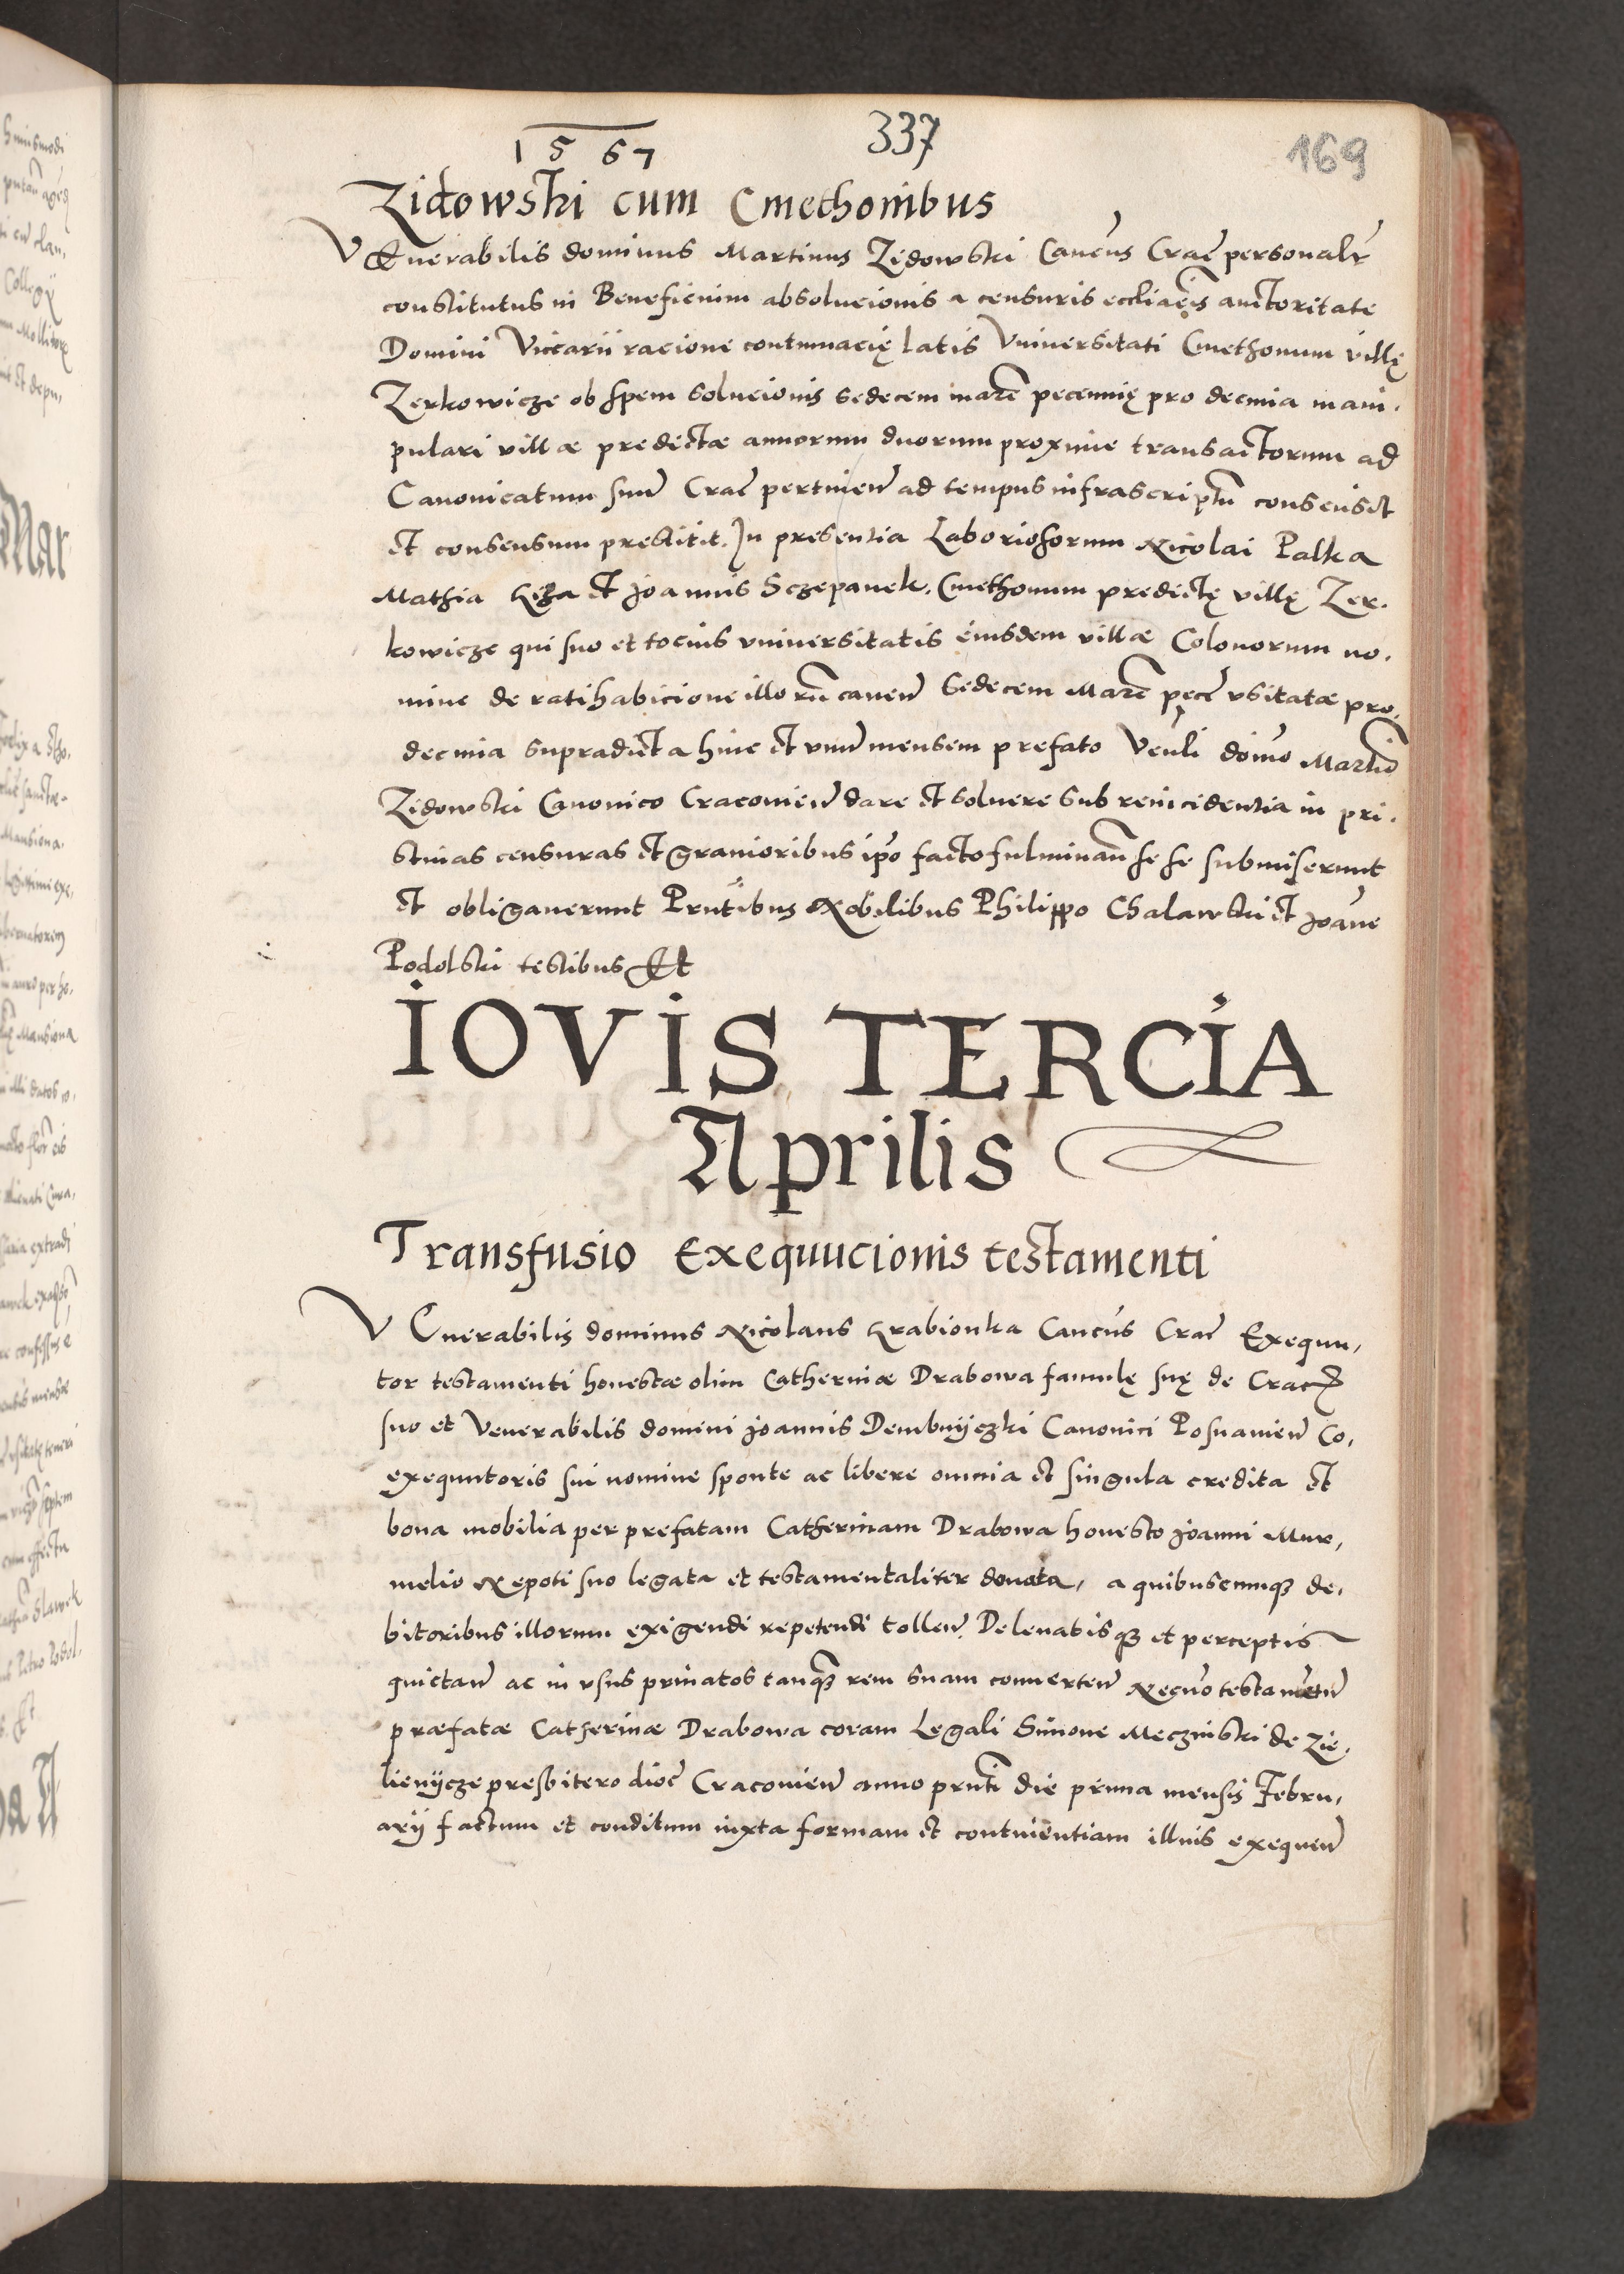 1567
337
169
Zidowski cum Cmethonibus
VEnerabilis dominus Martinus Zidowski Cancus Crac personalr
constitutus in Beneficium absolucionis a censuris eccliacis auctoritate
Domini Vicarii racione contumacię latis Vniversitati Cmethonum villę
Zerkowicze ob spem solucionis sedecem marc pecunię pro decima mani,
pulari villæ predictæ annorum duorum proxime transactorum ad
Canonicatum suum Crac pertinen ad tempus infrascriptum consensit
et consensum prestitit. In presentia Laboriosorum Nicolai Palka
Mathia et Joannis Sczepanek. Cmethonum predictę villę Zer,
kowicze qui suo et tocius vniversitatis eiusdem villæ Colonorum no,
mine de ratihabicione illorum caven Sedecem Marc pec vsitatæ pro
decima supradicta hinc et vnum mensem prefato Venli domo Martino
Zidowski Canonico Cracovien dare et solvere sub reincidentia in pri,
stinas censuras et gravioribus ipso facto fulminan se se submiserunt
et obligaverunt Prntibus Nobilibus Philippo Chalawski et Joanne
Podolski testibus Et
IOVIS TERCIA
Aprilis
Transfusio Exequucionis testamenti
VEnerabilis dominus Nicolaus Krabionka Cancus Crac Exequu,
tor testamenti honestæ olim Catherinæ Drabowa famulę suę de Crac
suo et Venerabilis domini Joannis Dembnyczki Canonici Posnanien Co,
exequutoris sui nomine sponte ac libere omnia et singula credita et
bona mobilia per prefatam Catherinam Drabowa honesto Joanni Mur,
melio Nepoti suo legata et testamentaliter donata, a quibuscunque de,
bitoribus illorum exigendi repetendi tollen Delevatisque et perceptis
quictan ac in vsus privatos tanque rem suam converten Necno testamentum
præfatæ Catherinæ Drabowa coram Legali Simone Meczinski de Zie,
lienycze presbitero dioc Cracovien anno prnti die prima mensis Febru,
arÿ factum et conditum iuxta formam et continentiam illius exequen